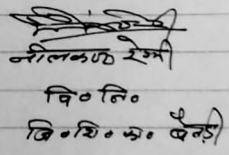 नीलकण्ठ रेग्मी
वि० नि०
जि० शि० का० बैतडी